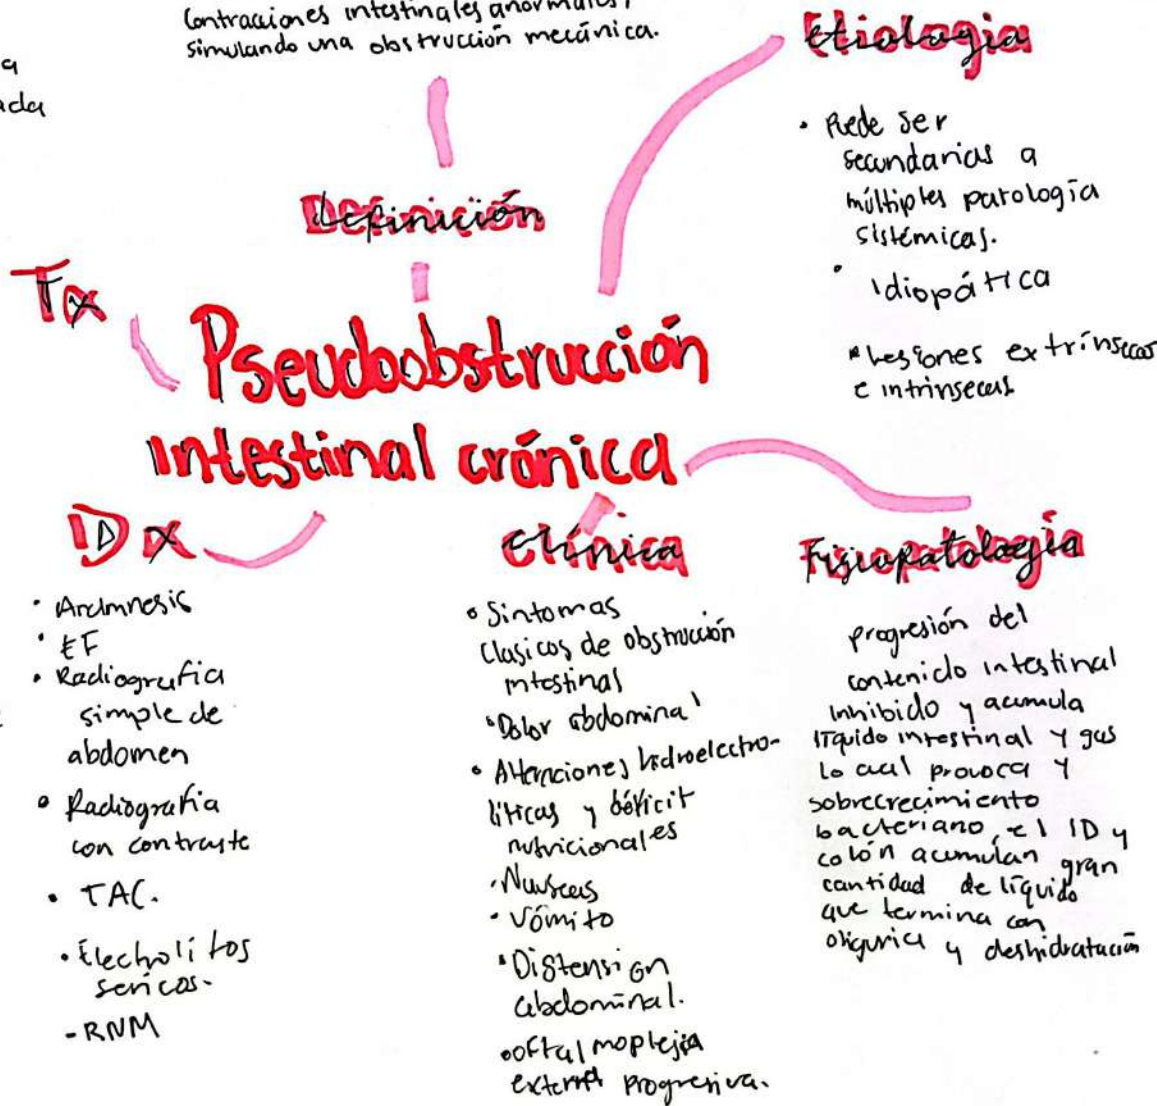 Contracciones intestinales anormales,
simulando una obstrucción mecánica.
Definición
Etiologia
• Puede ser
secundarias a
múltiples patología
sistémicas.
• Idiopática
• Lesiones extrínsecas
e intrínsecas
Tx
Pseudoobstrucción
intestinal crónica
Dx
• Anamnesis
• EF
• Radiografia
simple de
abdomen
• Radiografia
con contraste
• TAC.
• Electrolitos
sericos.
- RNM
Clínica
• Sintomas
Clasicos de obstrucción
intestinal
• Dolor abdominal
• hidroelectro-
líticas y déficit
nutricionales
• Nauseas
• Vómito
• Distensión
abdominal.
• oftalmoplejia
externa progresiva.
Fisiopatología
progresión del
contenido intestinal
inhibido y acumula
líquido intestinal y gas
lo cual provoca y
sobrecrecimiento
bacteriano, el ID y
colón acumulan gran
cantidad de líquido
que termina con
oliguria y deshidratación